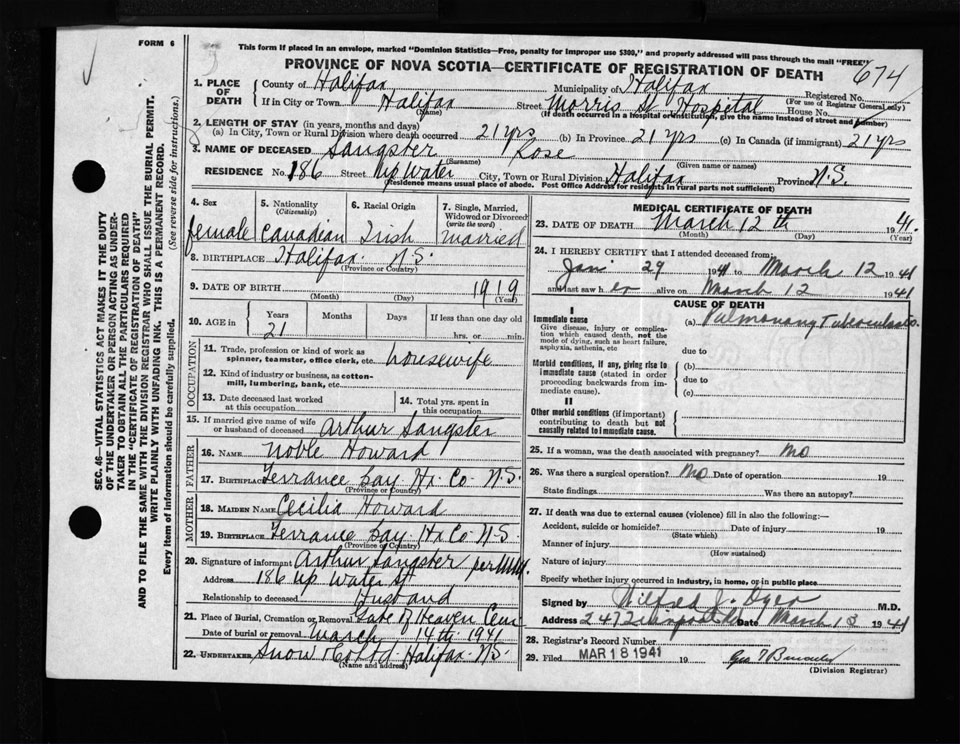 FORM 6
This form if placed in an envelope, marked "Dominion Statistics—Free, penalty for improper use $300," and properly addressed will pass through the mail "FREE"
PROVINCE OF NOVA SCOTIA—CERTIFICATE OF REGISTRATION OF DEATH
674
1. PLACE OF DEATH
County of Halifax Municipality of Halifax Registered No.
(For use of Registrar General only)
If in City or Town Halifax Street Morris St Hospital House No.
(Name) (If death occurred in a hospital or institution, give the name instead of street and number)
2. LENGTH OF STAY (in years, months and days)
(a) In City, Town or Rural Division where death occurred 21 yrs (b) In Province 21 yrs (c) In Canada (if immigrant) 21 yrs
3. NAME OF DECEASED Sangster Rose
(Surname) (Given name or names)
RESIDENCE No. 186 Street Up Water City, Town or Rural Division Halifax Province N.S.
(Residence means usual place of abode. Post Office Address for residents in rural parts not sufficient)
4. Sex 5. Nationality (Citizenship) 6. Racial Origin 7. Single, Married, Widowed or Divorced (write the word)
female Canadian Irish married
8. BIRTHPLACE Halifax N.S.
(Province or Country)
9. DATE OF BIRTH 1919
(Month) (Day) (Year)
10. AGE in Years Months Days If less than one day old
21 hrs. or min.
OCCUPATION
11. Trade, profession or kind of work as spinner, teamster, office clerk, etc. housewife
12. Kind of industry or business, as cotton-mill, lumbering, bank, etc.
13. Date deceased last worked at this occupation
14. Total yrs. spent in this occupation
15. If married give name of wife or husband of deceased Arthur Sangster
FATHER
16. NAME Noble Howard
17. BIRTHPLACE Terrance Bay Hx. Co. N.S.
(Province or Country)
MOTHER
18. MAIDEN NAME Cecilia Howard
19. BIRTHPLACE Terrance Bay Hx Co N.S.
(Province or Country)
20. Signature of informant Arthur Sangster per
Address 186 Up Water St
Relationship to deceased Husband
21. Place of Burial, Cremation or Removal Gate of Heaven Cem
Date of burial or removal March 14th 1941
22. UNDERTAKER Snow & Co Ltd. Halifax N.S.
(Name and address)
MEDICAL CERTIFICATE OF DEATH
23. DATE OF DEATH March 12th 1941.
(Month) (Day) (Year)
24. I HEREBY CERTIFY that I attended deceased from
Jan 29 1941 to March 12 1941
and last saw her alive on March 12 1941
CAUSE OF DEATH
I
Immediate cause
Give disease, injury or complication which caused death, not the mode of dying, such as heart failure, asphyxia, asthenia, etc
(a) Pulmonary Tuberculosis.
due to
Morbid conditions, if any, giving rise to immediate cause (stated in order proceeding backwards from immediate cause).
(b)
due to
(c)
II
Other morbid conditions (if important) contributing to death but not causally related to immediate cause.
25. If a woman, was the death associated with pregnancy? No
26. Was there a surgical operation? No Date of operation 19
State findings Was there an autopsy?
27. If death was due to external causes (violence) fill in also the following:—
Accident, suicide or homicide? Date of injury 19
(State which)
Manner of injury
(How sustained)
Nature of injury
Specify whether injury occurred in industry, in home, or in public place
Signed by Wilfred J. Dyer M.D.
Address 247 Date March 13 1941
28. Registrar's Record Number
29. Filed MAR 18 1941 19
(Division Registrar)
SEC. 46—VITAL STATISTICS ACT MAKES IT THE DUTY
OF THE UNDERTAKER OR PERSON ACTING AS UNDER-
TAKER TO OBTAIN ALL THE PARTICULARS REQUIRED
IN THE "CERTIFICATE OF REGISTRATION OF DEATH"
AND TO FILE THE SAME WITH THE DIVISION REGISTRAR WHO SHALL ISSUE THE BURIAL PERMIT.
WRITE PLAINLY WITH UNFADING INK. THIS IS A PERMANENT RECORD.
Every item of information should be carefully supplied. (See reverse side for instructions.)